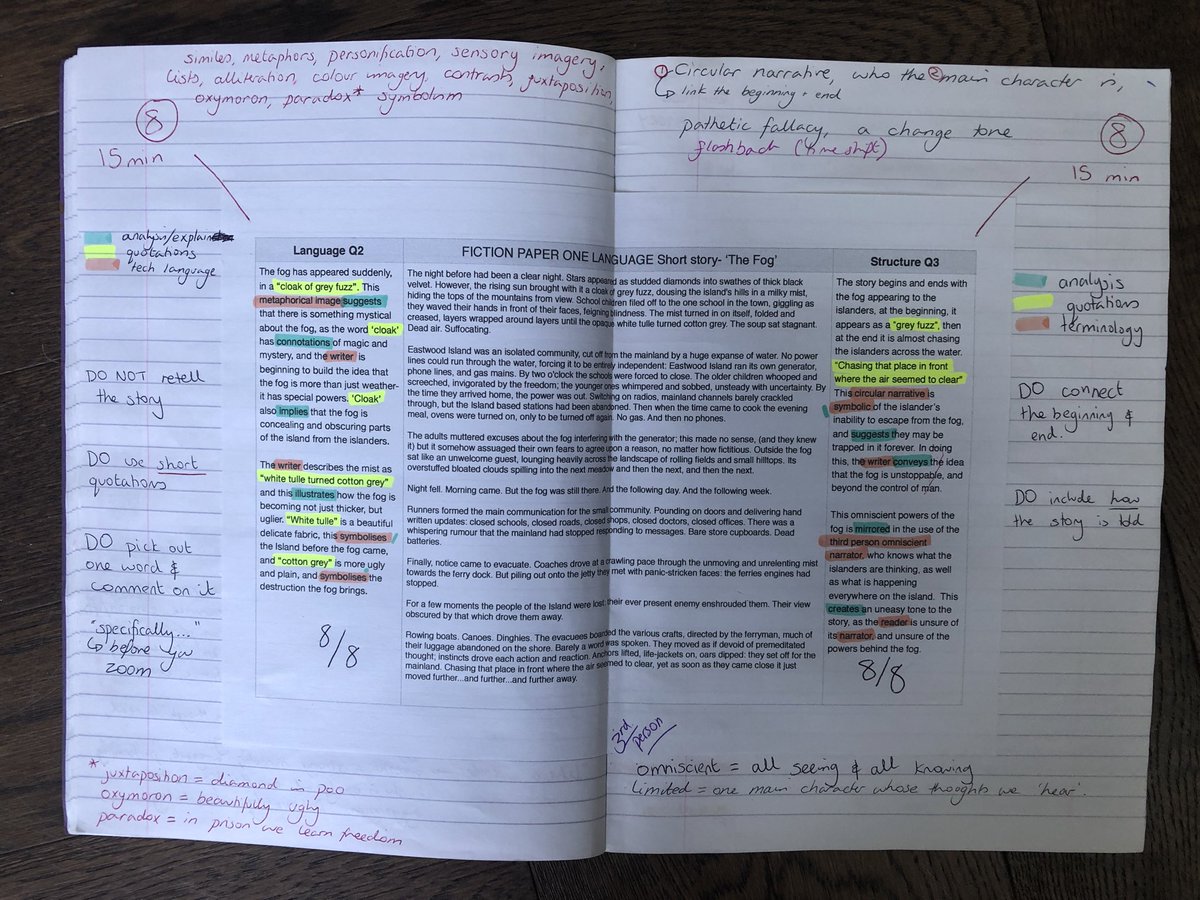 similes, metaphors, personification, sensory imagery,
lists, alliteration, colour imagery, contrasts, juxtaposition,
oxymoron, paradox* symbolism
8
15 min
analysis/explain
quotations
tech language
DO NOT retell
the story
DO use short
quotations
DO pick out
one word &
comment on it
"specifically..."
↳ before you
zoom
Language Q2
The fog has appeared suddenly,
in a "cloak of grey fuzz". This
metaphorical image suggests
that there is something mystical
about the fog, as the word 'cloak'
has connotations of magic and
mystery, and the writer is
beginning to build the idea that
the fog is more than just weather-
it has special powers. 'Cloak'
also implies that the fog is
concealing and obscuring parts
of the island from the islanders.
The writer describes the mist as
"white tulle turned cotton grey"
and this illustrates how the fog is
becoming not just thicker, but
uglier. "White tulle" is a beautiful
delicate fabric, this symbolises
the Island before the fog came,
and "cotton grey" is more ugly
and plain, and symbolises the
destruction the fog brings.
8/8
FICTION PAPER ONE LANGUAGE Short story- 'The Fog'
The night before had been a clear night. Stars appeared as studded diamonds into swathes of thick black
velvet. However, the rising sun brought with it a cloak of grey fuzz, dousing the island's hills in a milky mist,
hiding the tops of the mountains from view. School children filed off to the one school in the town, giggling as
they waved their hands in front of their faces, feigning blindness. The mist turned in on itself, folded and
creased, layers wrapped around layers until the opaque white tulle turned cotton grey. The soup sat stagnant.
Dead air. Suffocating.
Eastwood Island was an isolated community, cut off from the mainland by a huge expanse of water. No power
lines could run through the water, forcing it to be entirely independent: Eastwood Island ran its own generator,
phone lines, and gas mains. By two o'clock the schools were forced to close. The older children whooped and
screeched, invigorated by the freedom; the younger ones whimpered and sobbed, unsteady with uncertainty. By
the time they arrived home, the power was out. Switching on radios, mainland channels barely crackled
through, but the Island based stations had been abandoned. Then when the time came to cook the evening
meal, ovens were turned on, only to be turned off again. No gas. And then no phones.
The adults muttered excuses about the fog interfering with the generator; this made no sense, (and they knew
it) but it somehow assuaged their own fears to agree upon a reason, no matter how fictitious. Outside the fog
sat like an unwelcome guest, lounging heavily across the landscape of rolling fields and small hilltops. Its
overstuffed bloated clouds spilling into the next meadow and then the next, and then the next.
Night fell. Morning came. But the fog was still there. And the following day. And the following week.
Runners formed the main communication for the small community. Pounding on doors and delivering hand
written updates: closed schools, closed roads, closed shops, closed doctors, closed offices. There was a
whispering rumour that the mainland had stopped responding to messages. Bare store cupboards. Dead
batteries.
Finally, notice came to evacuate. Coaches drove at a crawling pace through the unmoving and unrelenting mist
towards the ferry dock. But piling out onto the jetty they met with panic-stricken faces: the ferries engines had
stopped.
For a few moments the people of the Island were lost: their ever present enemy enshrouded them. Their view
obscured by that which drove them away.
Rowing boats. Canoes. Dinghies. The evacuees boarded the various crafts, directed by the ferryman, much of
their luggage abandoned on the shore. Barely a word was spoken. They moved as if devoid of premeditated
thought; instincts drove each action and reaction. Anchors lifted, life-jackets on, oars dipped: they set off for the
mainland. Chasing that place in front where the air seemed to clear, yet as soon as they came close it just
moved further...and further...and further away.
Structure Q3
The story begins and ends with
the fog appearing to the
islanders, at the beginning, it
appears as a "grey fuzz", then
at the end it is almost chasing
the islanders across the water.
"Chasing that place in front
where the air seemed to clear"
This circular narrative is
symbolic of the islander's
inability to escape from the fog,
and suggests they may be
trapped in it forever. In doing
this, the writer conveys the idea
that the fog is unstoppable, and
beyond the control of man.
This omniscient powers of the
fog is mirrored in the use of the
third person omniscient
narrator, who knows what the
islanders are thinking, as well
as what is happening
everywhere on the island. This
creates an uneasy tone to the
story, as the reader is unsure of
its narrator, and unsure of the
powers behind the fog.
8/8
① Circular narrative, who the ② main character is,
↳ link the beginning + end
pathetic fallacy, a change tone
flashback (time shift)
8
15 min
analysis
quotations
terminology
DO connect
the beginning &
end.
DO include how
the story is told
* juxtaposition = diamond in poo
oxymoron = beautifully ugly
paradox = in prison we learn freedom
3rd person
omniscient = all seeing & all knowing
limited = one main character whose thoughts we 'hear'.